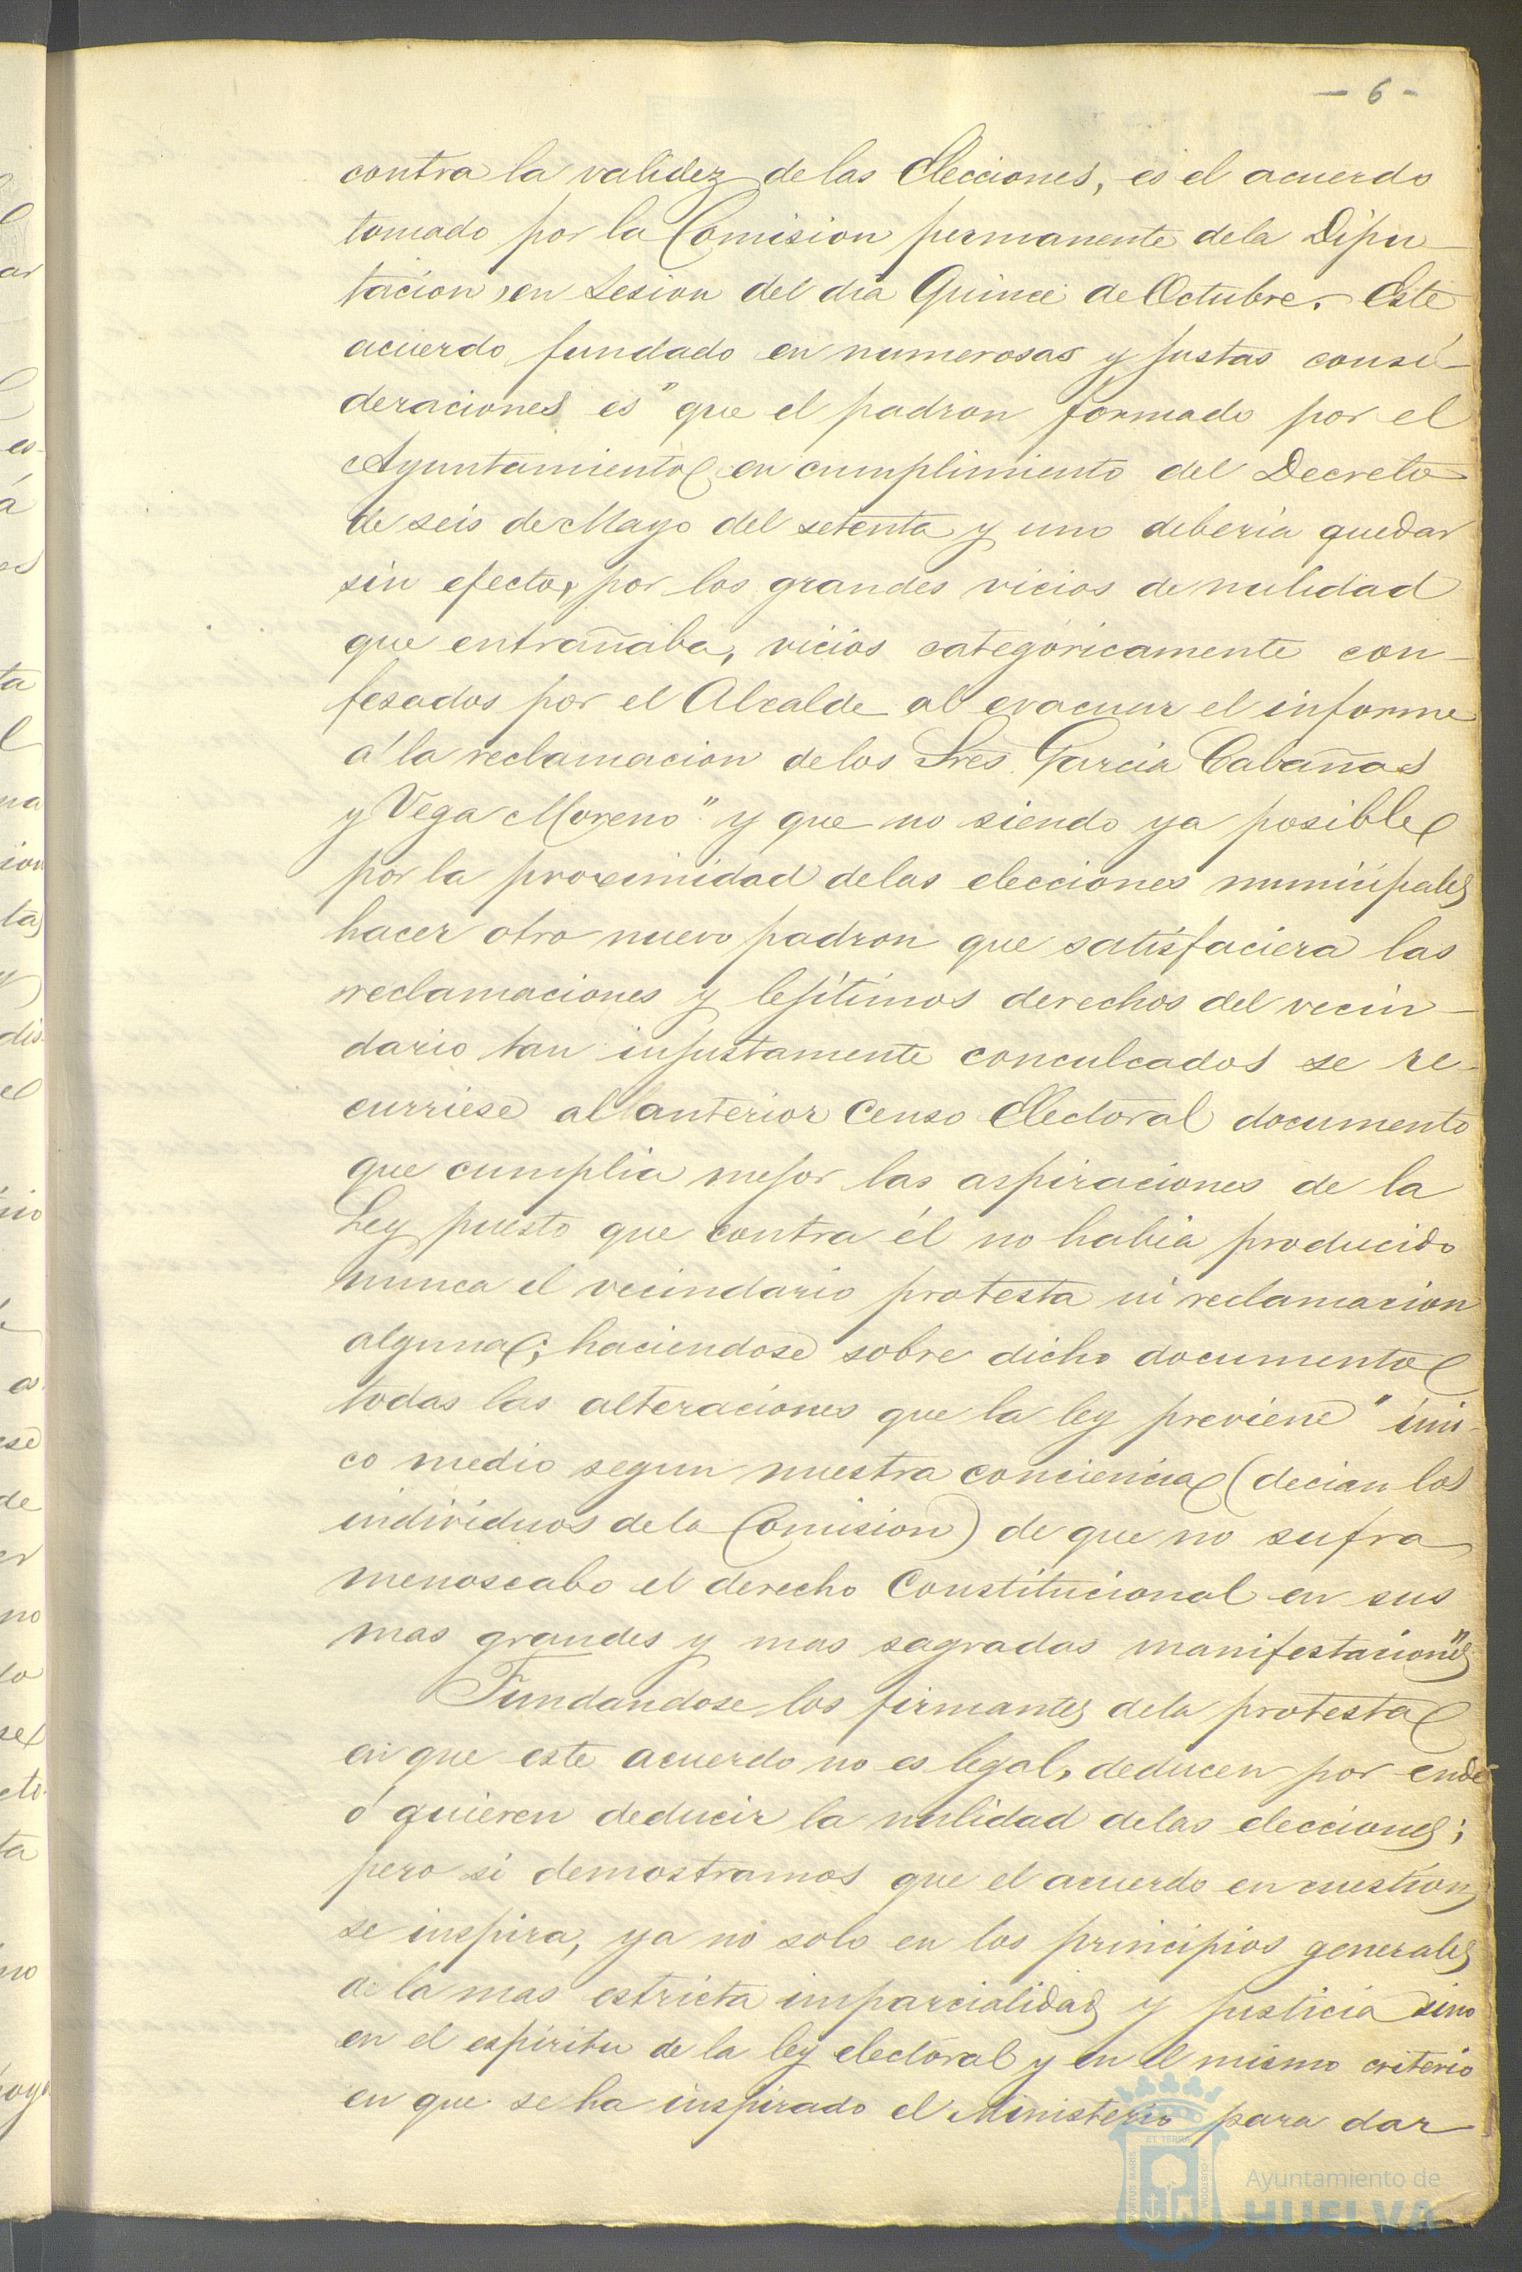 - 6 -
contra la validez de las Elecciones, es el acuerdo
tomado por la Comision permanente dela Dipu-
tacion, en Sesion del dia Quince de Octubre. Este
acuerdo fundado en numerosas y justas consi-
deraciones es "que el padron formado por el
Ayuntamiento en cumplimiento del Decreto
de seis de Mayo del setenta y uno deberia quedar
sin efecto, por los grandes vicios de nulidad
que entrañaba, vicios categóricamente con-
fesados por el Alcalde al evacuar el informe
á la reclamacion delos Sres. Garcia Cabañas
y Vega Moreno" y que no siendo ya posible
por la proximidad delas elecciones municipales
hacer otro nuevo padron que satisfaciera las
reclamaciones y lejítimos derechos del vecin-
dario tan injustamente conculcados se re-
curriese al anterior Censo Electoral documento
que cumplia mejor las aspiraciones de la
Ley puesto que contra él no habia producido
nunca el vecindario protesta ni reclamacion
alguna; haciendose sobre dicho documento
todas las alteraciones que la ley previene "úni-
co medio segun nuestra conciencia (decian los
individuos dela Comision) de que no sufra
menoscabo el derecho Constitucional en sus
mas grandes y mas sagradas manifestaciones"
Fundandose los firmantes dela protesta
en que este acuerdo no es legal, deducen por ende
ó quieren deducir la nulidad delas elecciones;
pero si demostramos que el acuerdo en cuestion
se inspira, ya no solo en los principios generales
de la mas estricta imparcialidad y justicia sino
en el espiritu de la ley electoral y en el mismo criterio
en que se ha inspirado el Ministerio para dar
Ayuntamiento de
HUELVA